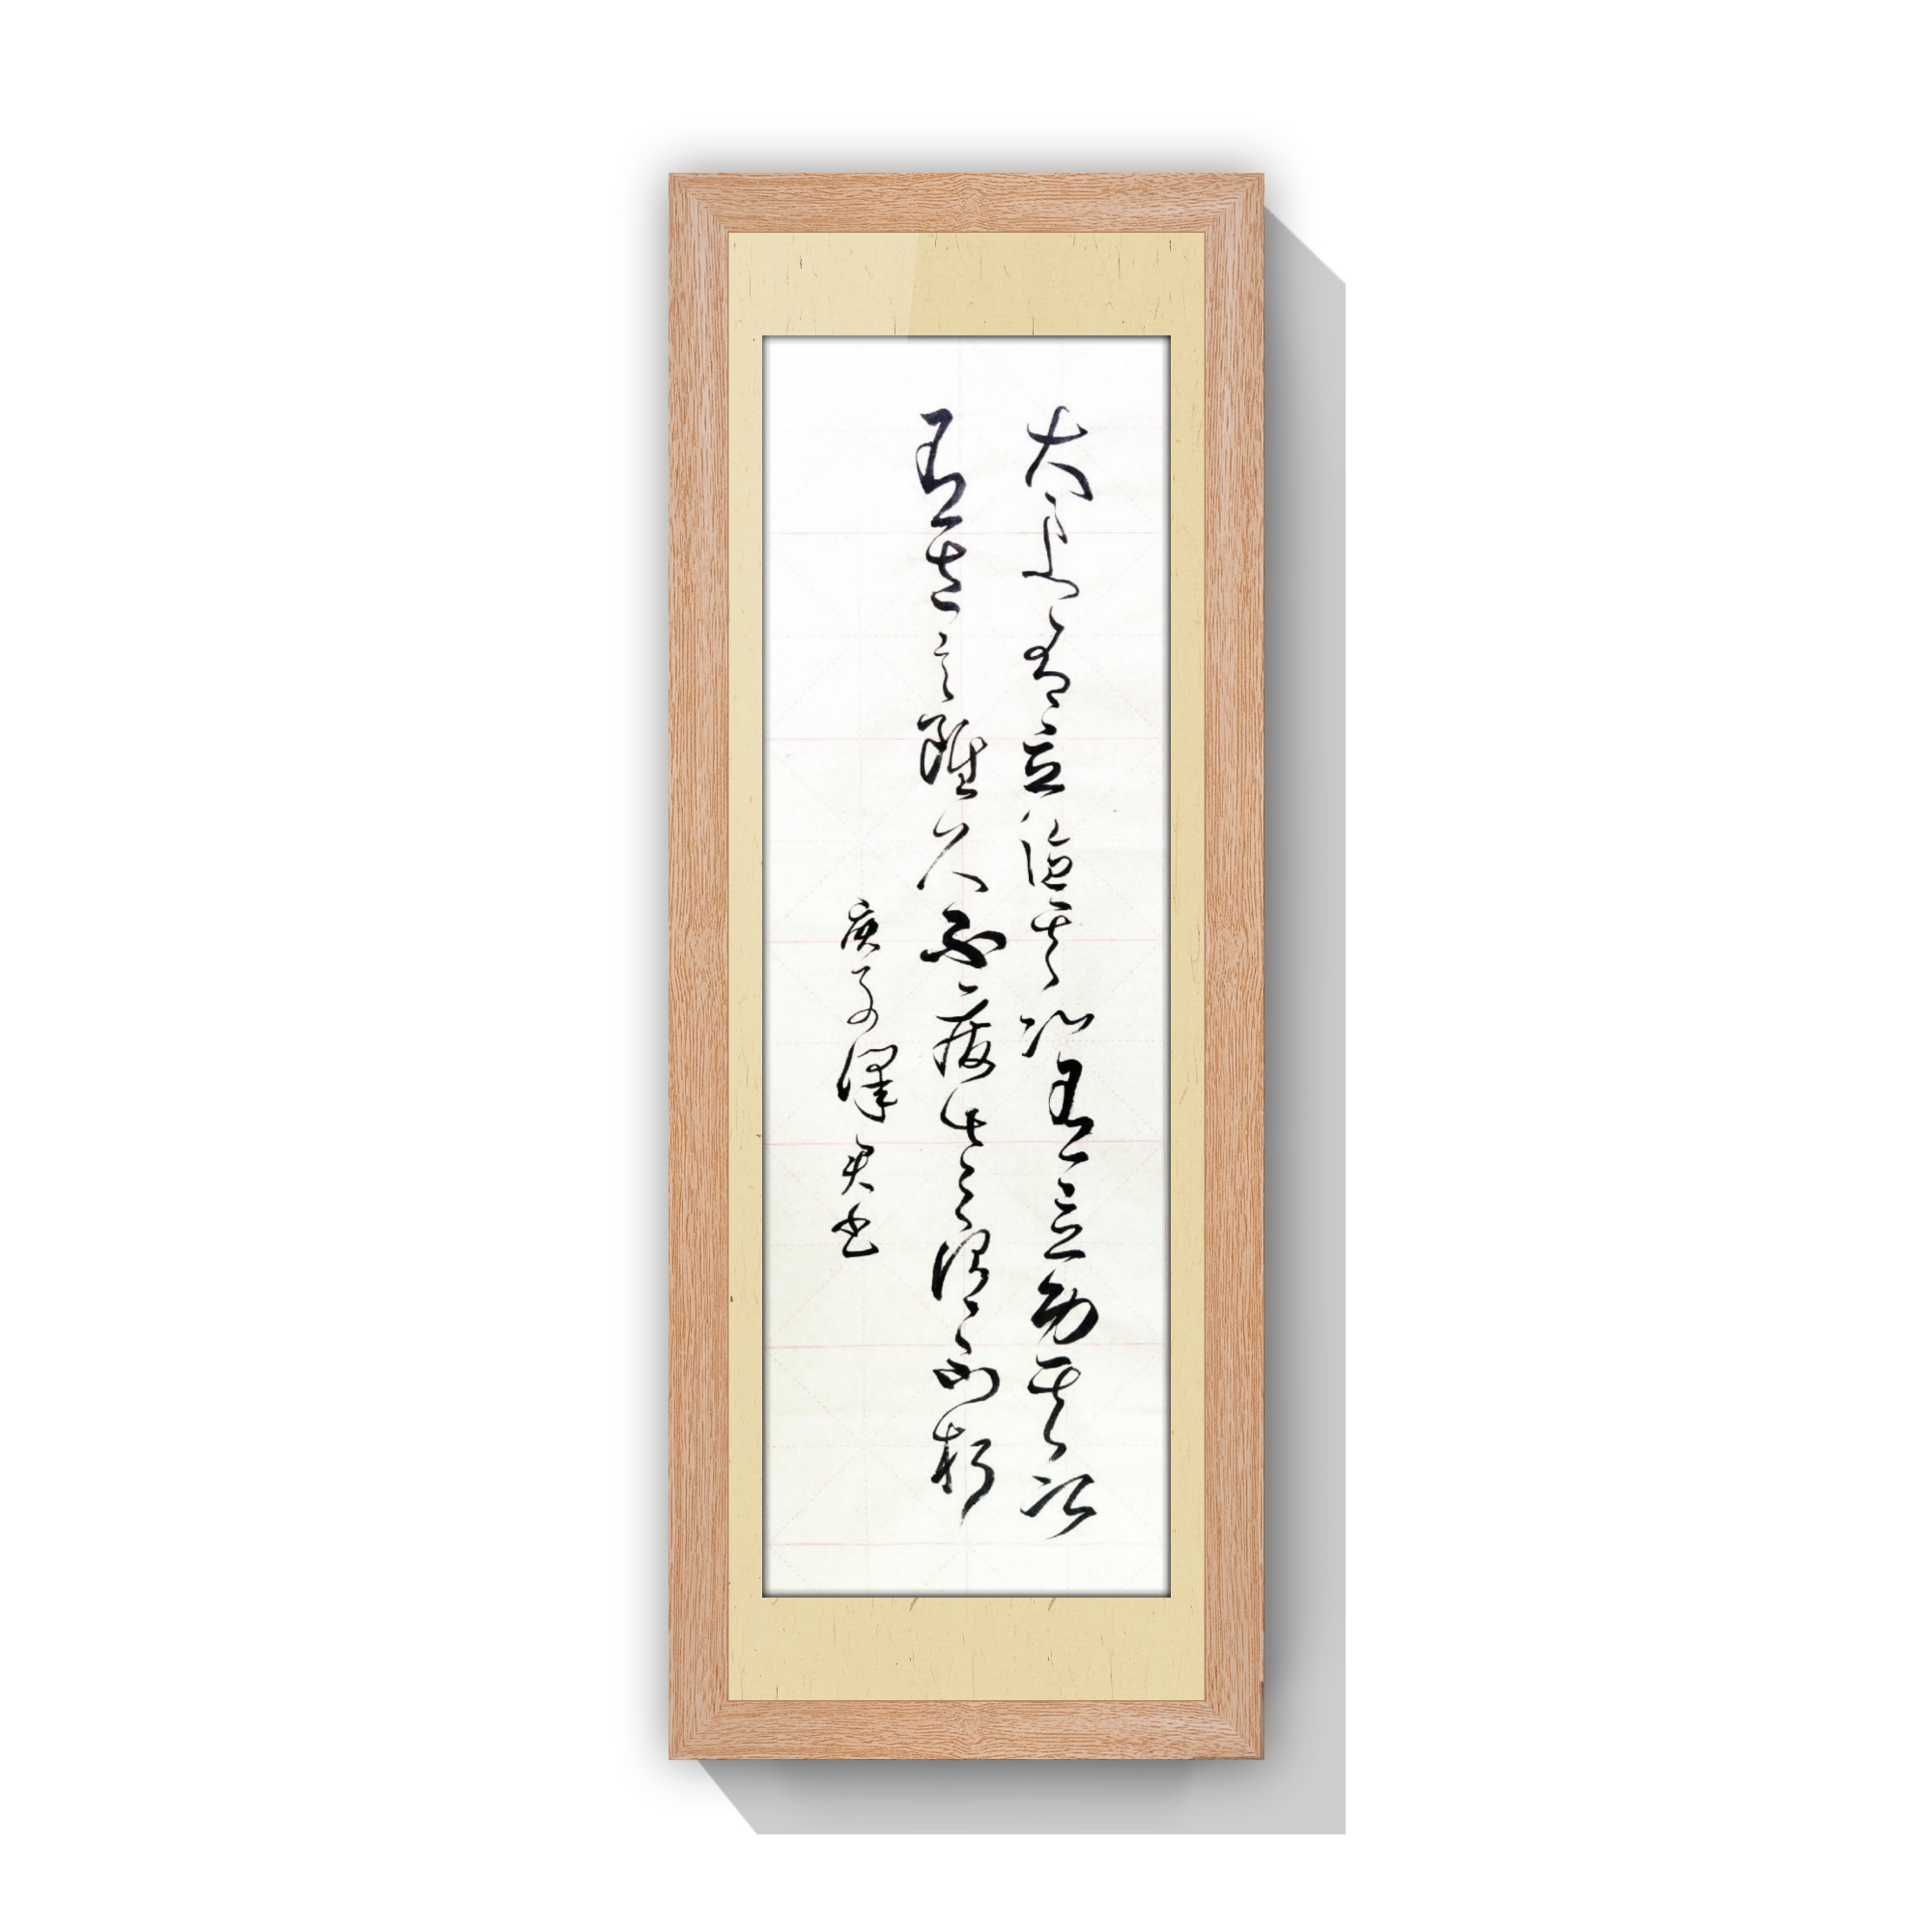 太上有立德其次有立功其次
有立言雖久不廢此之謂不朽
庚子澤君书